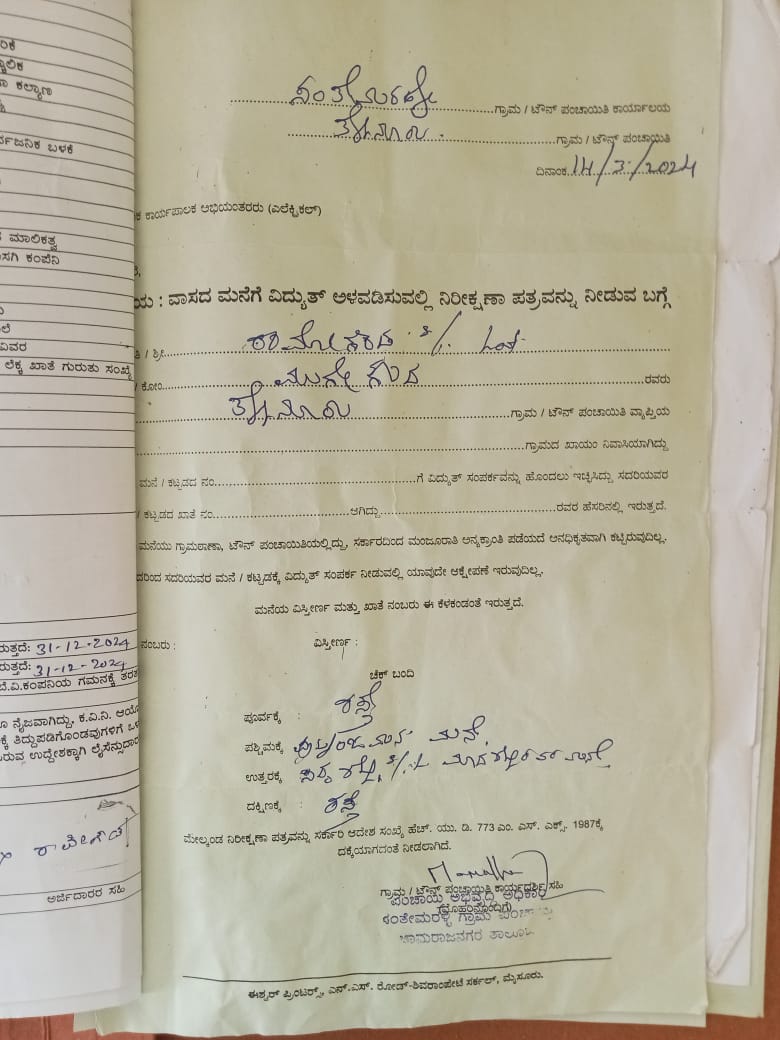 ಸಂತೇಮರಹಳ್ಳಿ ಗ್ರಾಮ / ಟೌನ್ ಪಂಚಾಯಿತಿ ಕಾರ್ಯಾಲಯ
ಗ್ರಾಮ / ಟೌನ್ ಪಂಚಾಯಿತಿ
ದಿನಾಂಕ 14/3/2024
ಕ ಕಾರ್ಯಪಾಲಕ ಅಭಿಯಂತರರು (ಎಲೆಕ್ಟ್ರಿಕಲ್)
ಯ : ವಾಸದ ಮನೆಗೆ ವಿದ್ಯುತ್ ಅಳವಡಿಸುವಲ್ಲಿ ನಿರೀಕ್ಷಣಾ ಪತ್ರವನ್ನು ನೀಡುವ ಬಗ್ಗೆ
ತಿ / ಶ್ರೀ S/o Late
/ ಕೋಂ ರವರು
ಗ್ರಾಮ / ಟೌನ್ ಪಂಚಾಯಿತಿ ವ್ಯಾಪ್ತಿಯ
ಗ್ರಾಮದ ಖಾಯಂ ನಿವಾಸಿಯಾಗಿದ್ದು
ಮನೆ / ಕಟ್ಟಡದ ನಂ. ಗೆ ವಿದ್ಯುತ್ ಸಂಪರ್ಕವನ್ನು ಹೊಂದಲು ಇಚ್ಛಿಸಿದ್ದು ಸದರಿಯವರ
/ ಕಟ್ಟಡದ ಖಾತೆ ನಂ. ಆಗಿದ್ದು ರವರ ಹೆಸರಿನಲ್ಲಿ ಇರುತ್ತದೆ.
ಮನೆಯು ಗ್ರಾಮಠಾಣಾ, ಟೌನ್ ಪಂಚಾಯಿತಿಯಲ್ಲಿದ್ದು, ಸರ್ಕಾರದಿಂದ ಮಂಜೂರಾತಿ ಅನ್ಯಕ್ರಾಂತಿ ಪಡೆಯದೆ ಅನಧಿಕೃತವಾಗಿ ಕಟ್ಟಿರುವುದಿಲ್ಲ.
ದರಿಂದ ಸದರಿಯವರ ಮನೆ / ಕಟ್ಟಡಕ್ಕೆ ವಿದ್ಯುತ್ ಸಂಪರ್ಕ ನೀಡುವಲ್ಲಿ ಯಾವುದೇ ಆಕ್ಷೇಪಣೆ ಇರುವುದಿಲ್ಲ.
ಮನೆಯ ವಿಸ್ತೀರ್ಣ ಮತ್ತು ಖಾತೆ ನಂಬರು ಈ ಕೆಳಕಂಡಂತೆ ಇರುತ್ತದೆ.
ನಂಬರು : ವಿಸ್ತೀರ್ಣ :
ಚೆಕ್ ಬಂದಿ
ಪೂರ್ವಕ್ಕೆ : ರಸ್ತೆ
ಪಶ್ಚಿಮಕ್ಕೆ ಮನೆ
ಉತ್ತರಕ್ಕೆ
ದಕ್ಷಿಣಕ್ಕೆ : ರಸ್ತೆ
ಮೇಲ್ಕಂಡ ನಿರೀಕ್ಷಣಾ ಪತ್ರವನ್ನು ಸರ್ಕಾರಿ ಆದೇಶ ಸಂಖ್ಯೆ ಹೆಚ್. ಯು. ಡಿ. 773 ಎಂ. ಎಸ್. ಎಕ್ಸ್. 1987ಕ್ಕೆ
ದಕ್ಕೆಯಾಗದಂತೆ ನೀಡಲಾಗಿದೆ.
ಗ್ರಾಮ / ಟೌನ್ ಪಂಚಾಯಿತಿ ಕಾರ್ಯದರ್ಶಿ ಸಹಿ
(ಮೊಹರಿನೊಂದಿಗೆ)
ಚಾಮರಾಜನಗರ ತಾಲೂಕು
ಈಶ್ವರ್ ಪ್ರಿಂಟರ್ಸ್, ಎನ್.ಎಸ್. ರೋಡ್-ಶಿವರಾಂಪೇಟೆ ಸರ್ಕಲ್, ಮೈಸೂರು.
ಕಲ್ಯಾಣ
ರ್ವಜನಿಕ ಬಳಕೆ
ಮಾಲಿಕತ್ವ
ಸಗಿ ಕಂಪೆನಿ
ವಿವರ
ಲೆಕ್ಕ ಖಾತೆ ಗುರುತು ಸಂಖ್ಯೆ
ರುತ್ತದೆ: 31-12-2024
ರುತ್ತದೆ: 31-12-2024
ಬಿ.ವಿ.ಕಂಪನಿಯ ಗಮನಕ್ಕೆ ತರತ
ನೈಜವಾಗಿದ್ದು, ಕ.ವಿ.ನಿ. ಆಯೋ
ಕ್ಕೆ ತಿದ್ದುಪಡಿಗೊಂಡವುಗಳಿಗೆ ಒಳ
ರುವ ಉದ್ದೇಶಕ್ಕಾಗಿ ಲೈಸೆನ್ಸುದಾರ
ಅರ್ಜಿದಾರರ ಸಹಿ